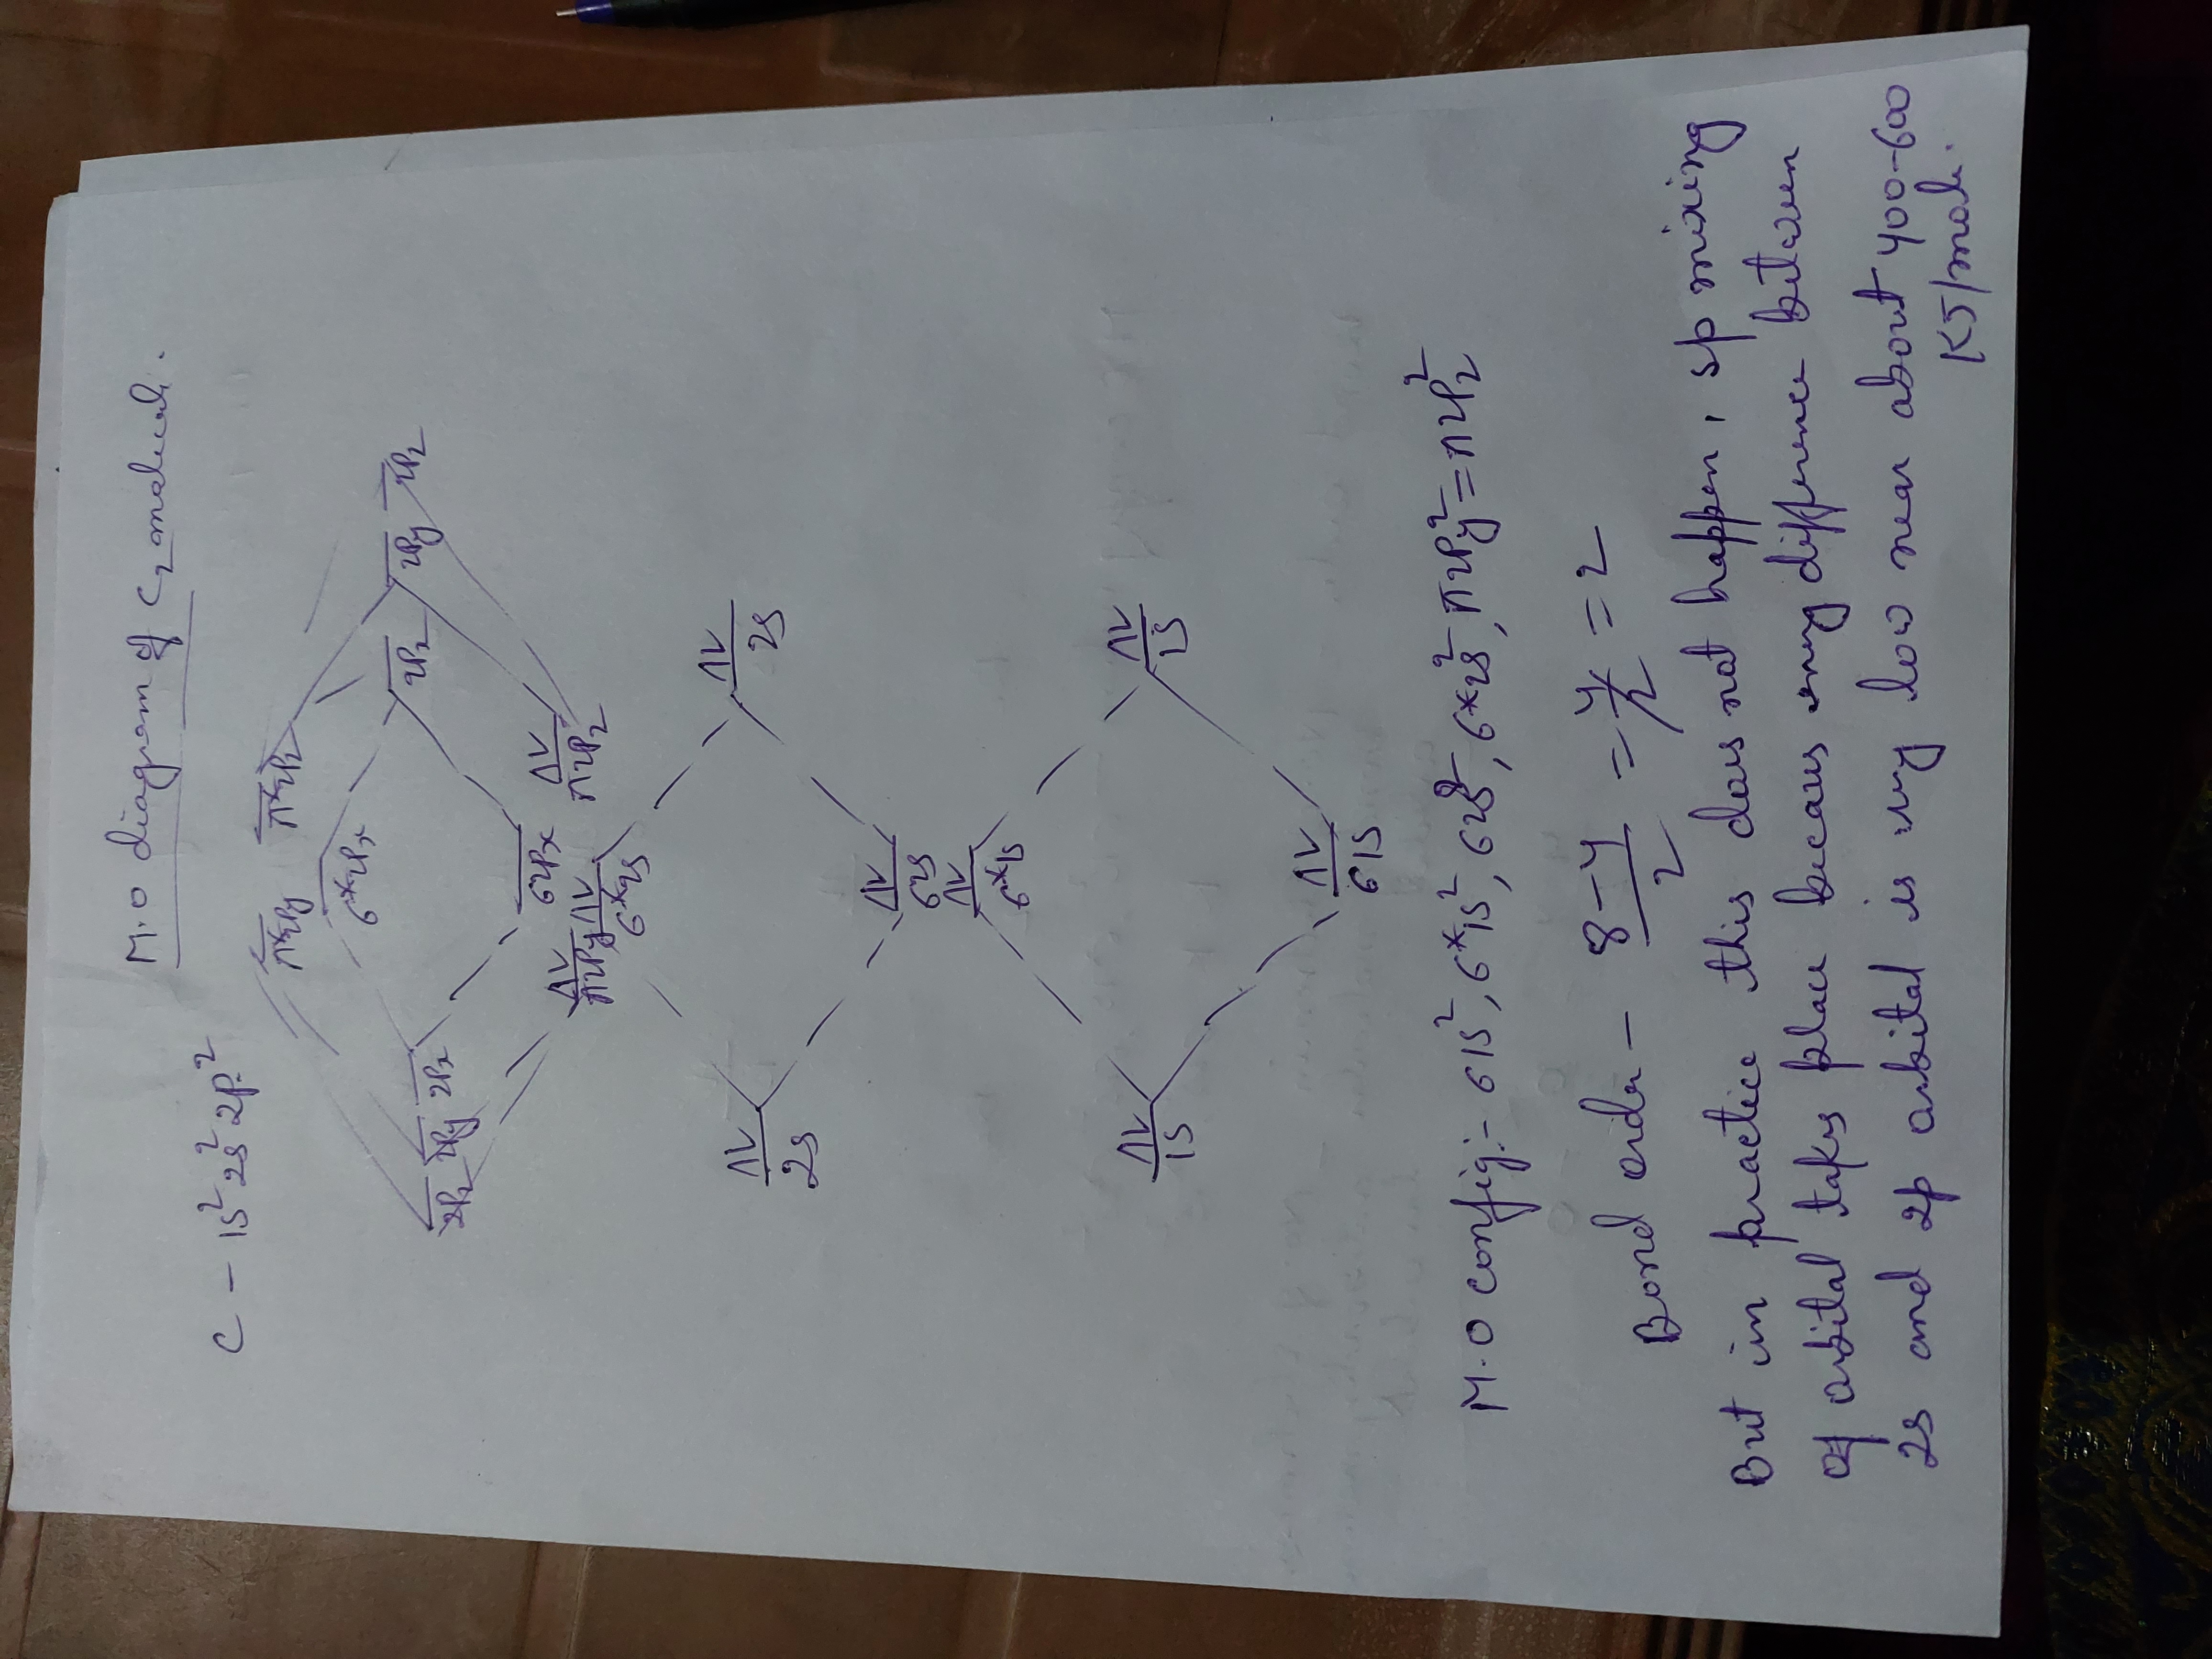 M.O diagram of C₂ molecule.
C - 1s² 2s² 2p²
π*2Py π*2Pz
σ*2Px
2Pz 2Py 2Px 2Pz 2Py 2Pz
σ2Px
π2Py π2Pz
σ*2s
2s 2s
σ2s
σ*1s
1s 1s
σ1s
M.O config:- σ1s², σ*1s², σ2s², σ*2s², π2Py² = π2Pz²
Bond order - 8-4/2 = 4/2 = 2
But in practice this does not happen, sp mixing
of orbital takes place because energy difference between
2s and 2p orbital is very low near about 400-600
KJ/mole.